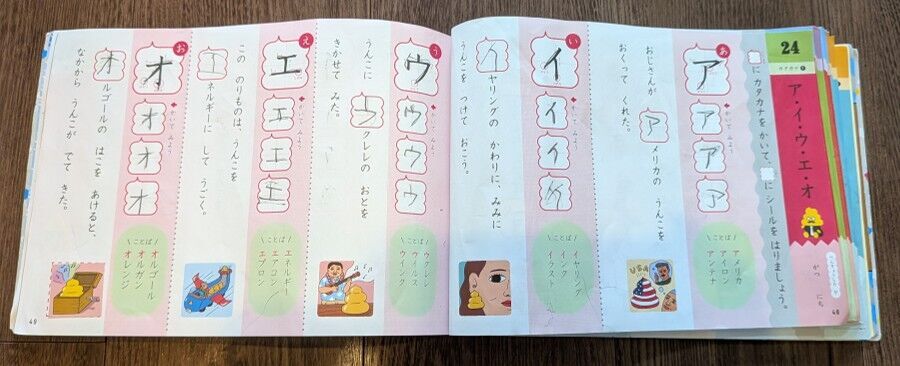 24
カタカナ①
ア・イ・ウ・エ・オ
がつ
にち
48
に カタカナを かいて、 に シールを はりましょう。
あ
ア
かいて みよう
ア
ア
ア
ことば
アメリカ
アイロン
アンテナ
おじさんが アメリカの うんこを
おくって くれた。
USA
い
イ
かいて みよう
イ
イ
イ
ことば
イヤリング
インク
イラスト
イヤリングの かわりに、みみに
うんこを つけて おこう。
う
ウ
かいて みよう
ウ
ウ
ウ
ことば
ウクレレ
ウイルス
ウインク
うんこに ウクレレの おとを
きかせて みた。
え
エ
かいて みよう
エ
エ
エ
ことば
エネルギー
エアコン
エプロン
この のりものは、うんこを
エネルギーに して うごく。
お
オ
かいて みよう
オ
オ
オ
ことば
オルゴール
オルガン
オレンジ
オルゴールの はこを あけると、
なかから うんこが でて きた。
49